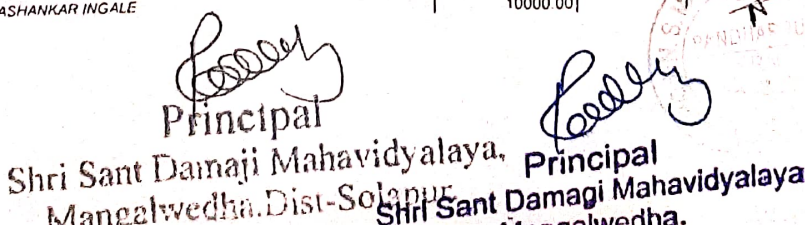 ASHANKAR INGALE
10000.00
Principal
Shri Sant Damaji Mahavidyalaya,
Mangalwedha.Dist-Solapur
Principal
Shri Sant Damagi Mahavidyalaya
Mangalwedha.